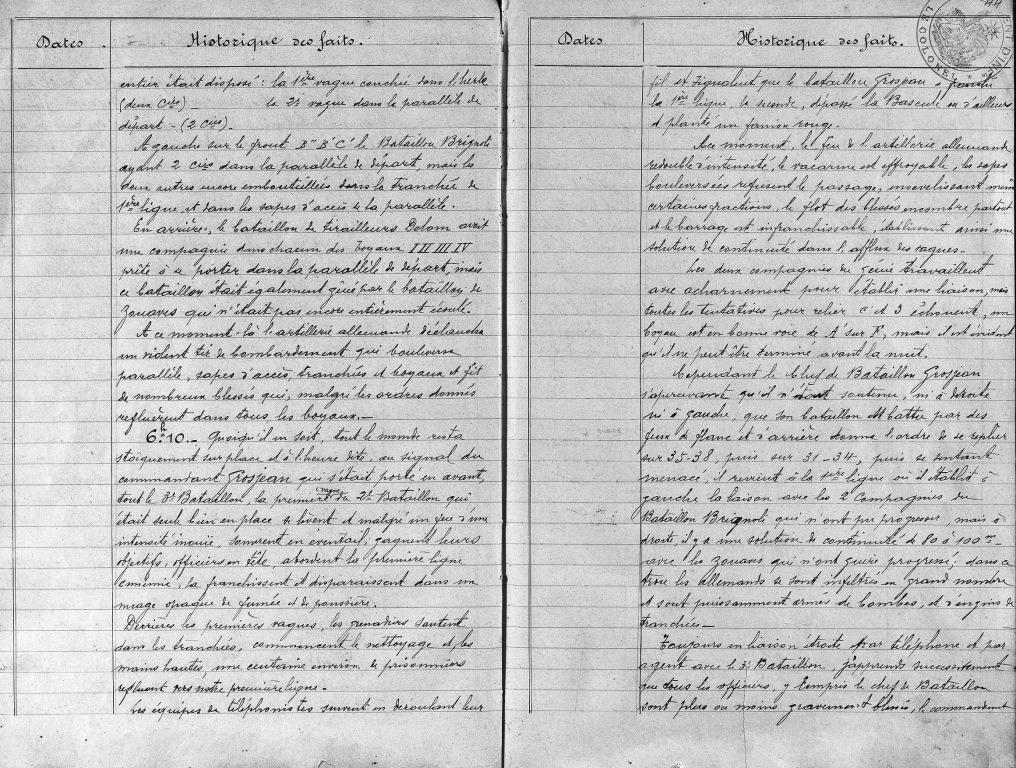 Dates. Historique des faits.
entier était disposé : la 1ère vague couchée dans l'herbe
(deux Cies) — la 2e vague dans la parallèle de
départ — (2 Cies) —
A gauche sur le front B" B' C' le Bataillon Brignoli
ayant 2 cies dans la parallèle de départ, mais les
deux autres encore embouteillées dans la tranchée de
1ère ligne et dans les sapes d'accès à la parallèle.
En arrière, le bataillon de tirailleurs Delom avait
une compagnie dans chacun des boyaux I II III IV
prête à se porter dans la parallèle de départ, mais
ce bataillon était également gêné par le bataillon de
zouaves qui n'était pas encore entièrement écoulé.
A ce moment-là l'artillerie allemande déchaîna
un violent tir de bombardement qui bouleversa
parallèle, sapes d'accès, tranchées et boyaux et fit
de nombreux blessés qui, malgré les ordres donnés
refluèrent dans tous les boyaux. —
6h10. — Quoiqu'il en soit, tout le monde resta
stoïquement sur place et à l'heure dite, au signal du
commandant Grosjean qui s'était porté en avant,
tout le 3e Bataillon, la première vague du 2e Bataillon qui
était seule bien en place se lèvent et malgré un feu d'une
intensité inouïe, s'ouvrent en éventail, gagnent leurs
objectifs, officiers en tête, abordent la première ligne
ennemie, la franchissent et disparaissent dans un
nuage opaque de fumée et de poussière.
Derrières les premières vagues, les grenadiers sautent
dans les tranchées, commencent le nettoyage et les
mains hautes, une centaine environ de prisonniers
refluent vers notre première ligne.
Les équipes de téléphonistes suivent en déroulant leur
Dates Historique des faits.
fil et signalent que le bataillon Grosjean a franchi
la 1ère ligne, la seconde, dépassé la Bascule où d'ailleurs
est planté un fanion rouge.
A ce moment, le feu de l'artillerie allemande
redouble d'intensité, le vacarme est effroyable, les sapes
bouleversées refusent le passage, ensevelissant même
certaines fractions, le flot des blessés encombre partout
et le barrage est infranchissable, établissant ainsi une
solution de continuité dans l'afflux des vagues. —
Les deux compagnies du génie travaillent
avec acharnement pour établir une liaison, mais
toutes les tentatives pour relier C' et 3 échouent, un
boyau est en bonne voie de A' sur F, mais il est évident
qu'il ne peut être terminé avant la nuit.
Cependant le Chef de Bataillon Grosjean
s'apercevant qu'il n'était soutenu, ni à droite
ni à gauche, que son bataillon est battu par des
feux de flanc et d'arrière donne l'ordre de se replier
sur 35-38, puis sur 31-34, puis se sentant
menacé, il revient à la 1ère ligne où il établit à
gauche la liaison avec les 2 Compagnies du
Bataillon Brignoli qui n'ont pu progresser, mais à
droite, il y a une solution de continuité de 80 à 100m —
avec les zouaves qui n'ont guère progressé; dans ce
trou les allemands se sont infiltrés en grand nombre
et sont puissamment armés de bombes, et d'engins de
tranchées —
Toujours en liaison étroite par téléphone et par
agent avec le 3e Bataillon, j'apprends successivement
que tous les officiers, y compris le chef de Bataillon
sont plus ou moins gravement blessés, le commandant